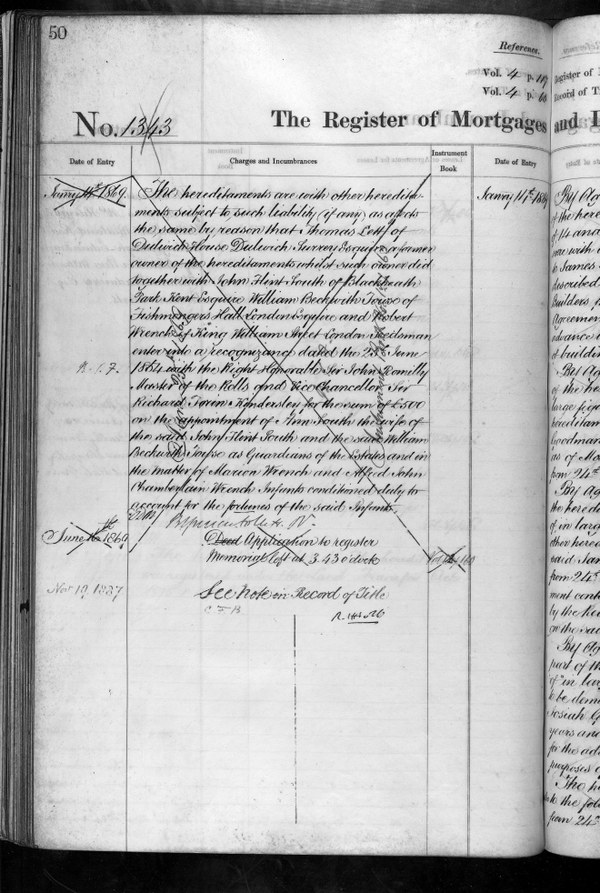 50
Reference.
Vol. 4 p.
Vol. 4 p.
No. 1343
The Register of Mortgages and
Date of Entry
Charges and Incumbrances
Instrument Book
Date of Entry
1869
The hereditaments are with other heredita-
ments subject to such liability (if any) as affects
the same by reason that Thomas Lett of
Dulwich House Dulwich Surrey Esquire a former
owner of the hereditaments whilst such owner did
together with John Flint South of Blackheath
Park Kent Esquire William Beckwith Towse of
Fishmongers Hall London Esquire and Robert
Wrench of King William Street London Seedsman
enter into a recognizance dated the 23rd June
1864 with the Right Honorable Sir John Romilly
Master of the Rolls and Vice Chancellor Sir
Richard Torin Kindersley for the sum of £500
on the appointment of Ann South the wife of
the said John Flint South and the said William
Beckwith Towse as Guardians of the Estates and in
the matter of Marion Wrench and Alfred John
Chamberlain Wrench Infants conditioned duly to
account for the fortunes of the said Infants.
June 1869
Deed Application to register
Memorial left at 3.43 o'clock
Nov 10, 1887
See note in Record of Title
Register of
Record of T
Date of Entry
By Ag
of the here
of 14 and
to James
described
Builders
Agreemen
advance
of building
By Ag
of the he
large fig
Goodman
as of Ma
from 24th
By Ag
of the here
of in larg
other hered
said Jam
from 24th
ment cont
by the
on the said
By Ag
part of th
of in larg
to be dem
Josiah G
years and
for the ad
purposes o
The h
to the fol
from 24th